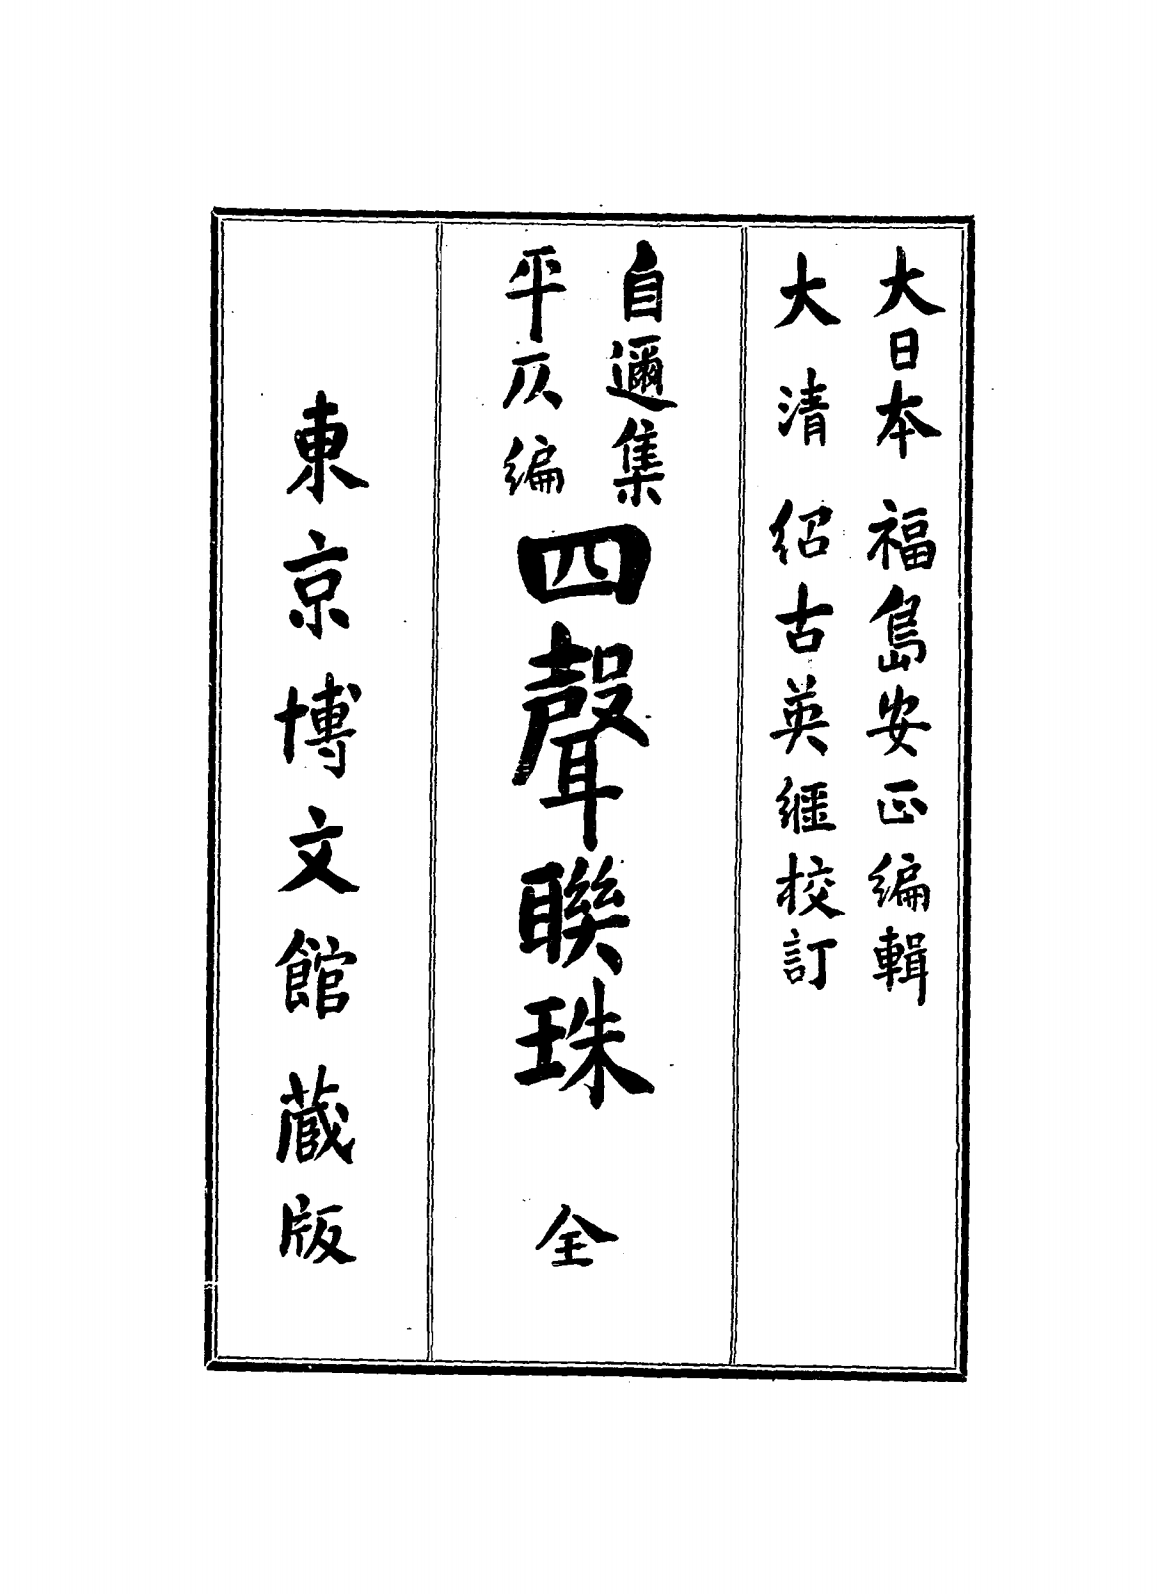 大日本 福島安正編輯
大清 紹古英繼校訂
自邇集
平仄編
四聲聯珠 全
東京博文館藏版